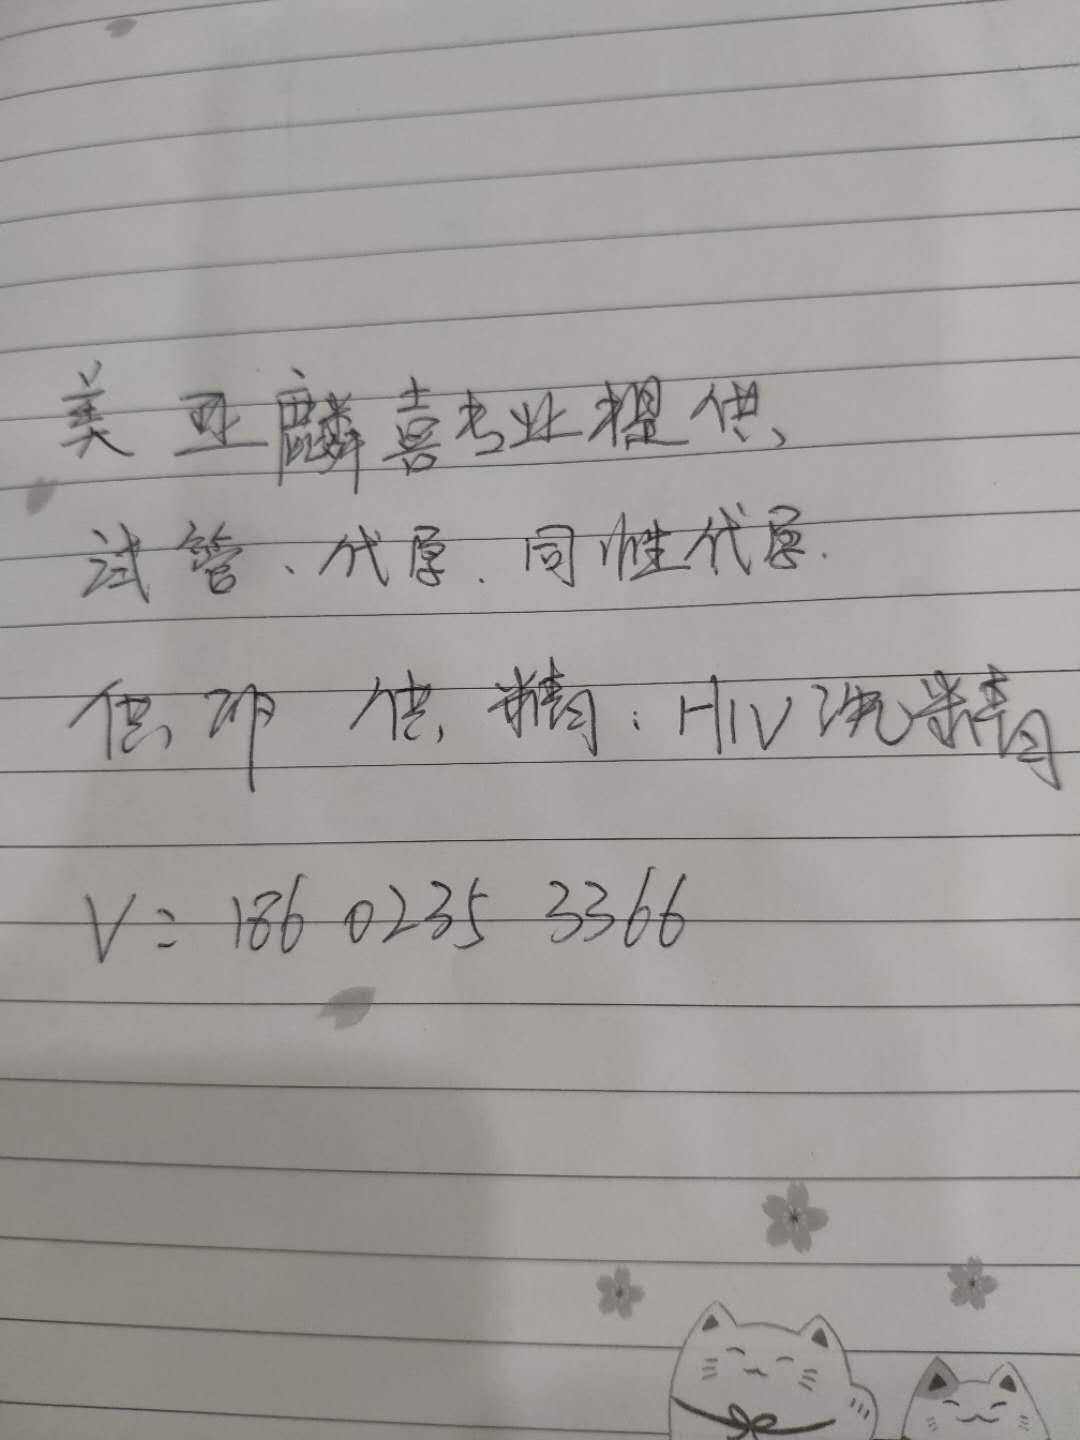 美亚麟喜专业提供
试管、代孕、同性代孕.
供卵 供精:HIV洗精
V:186 0235 3366